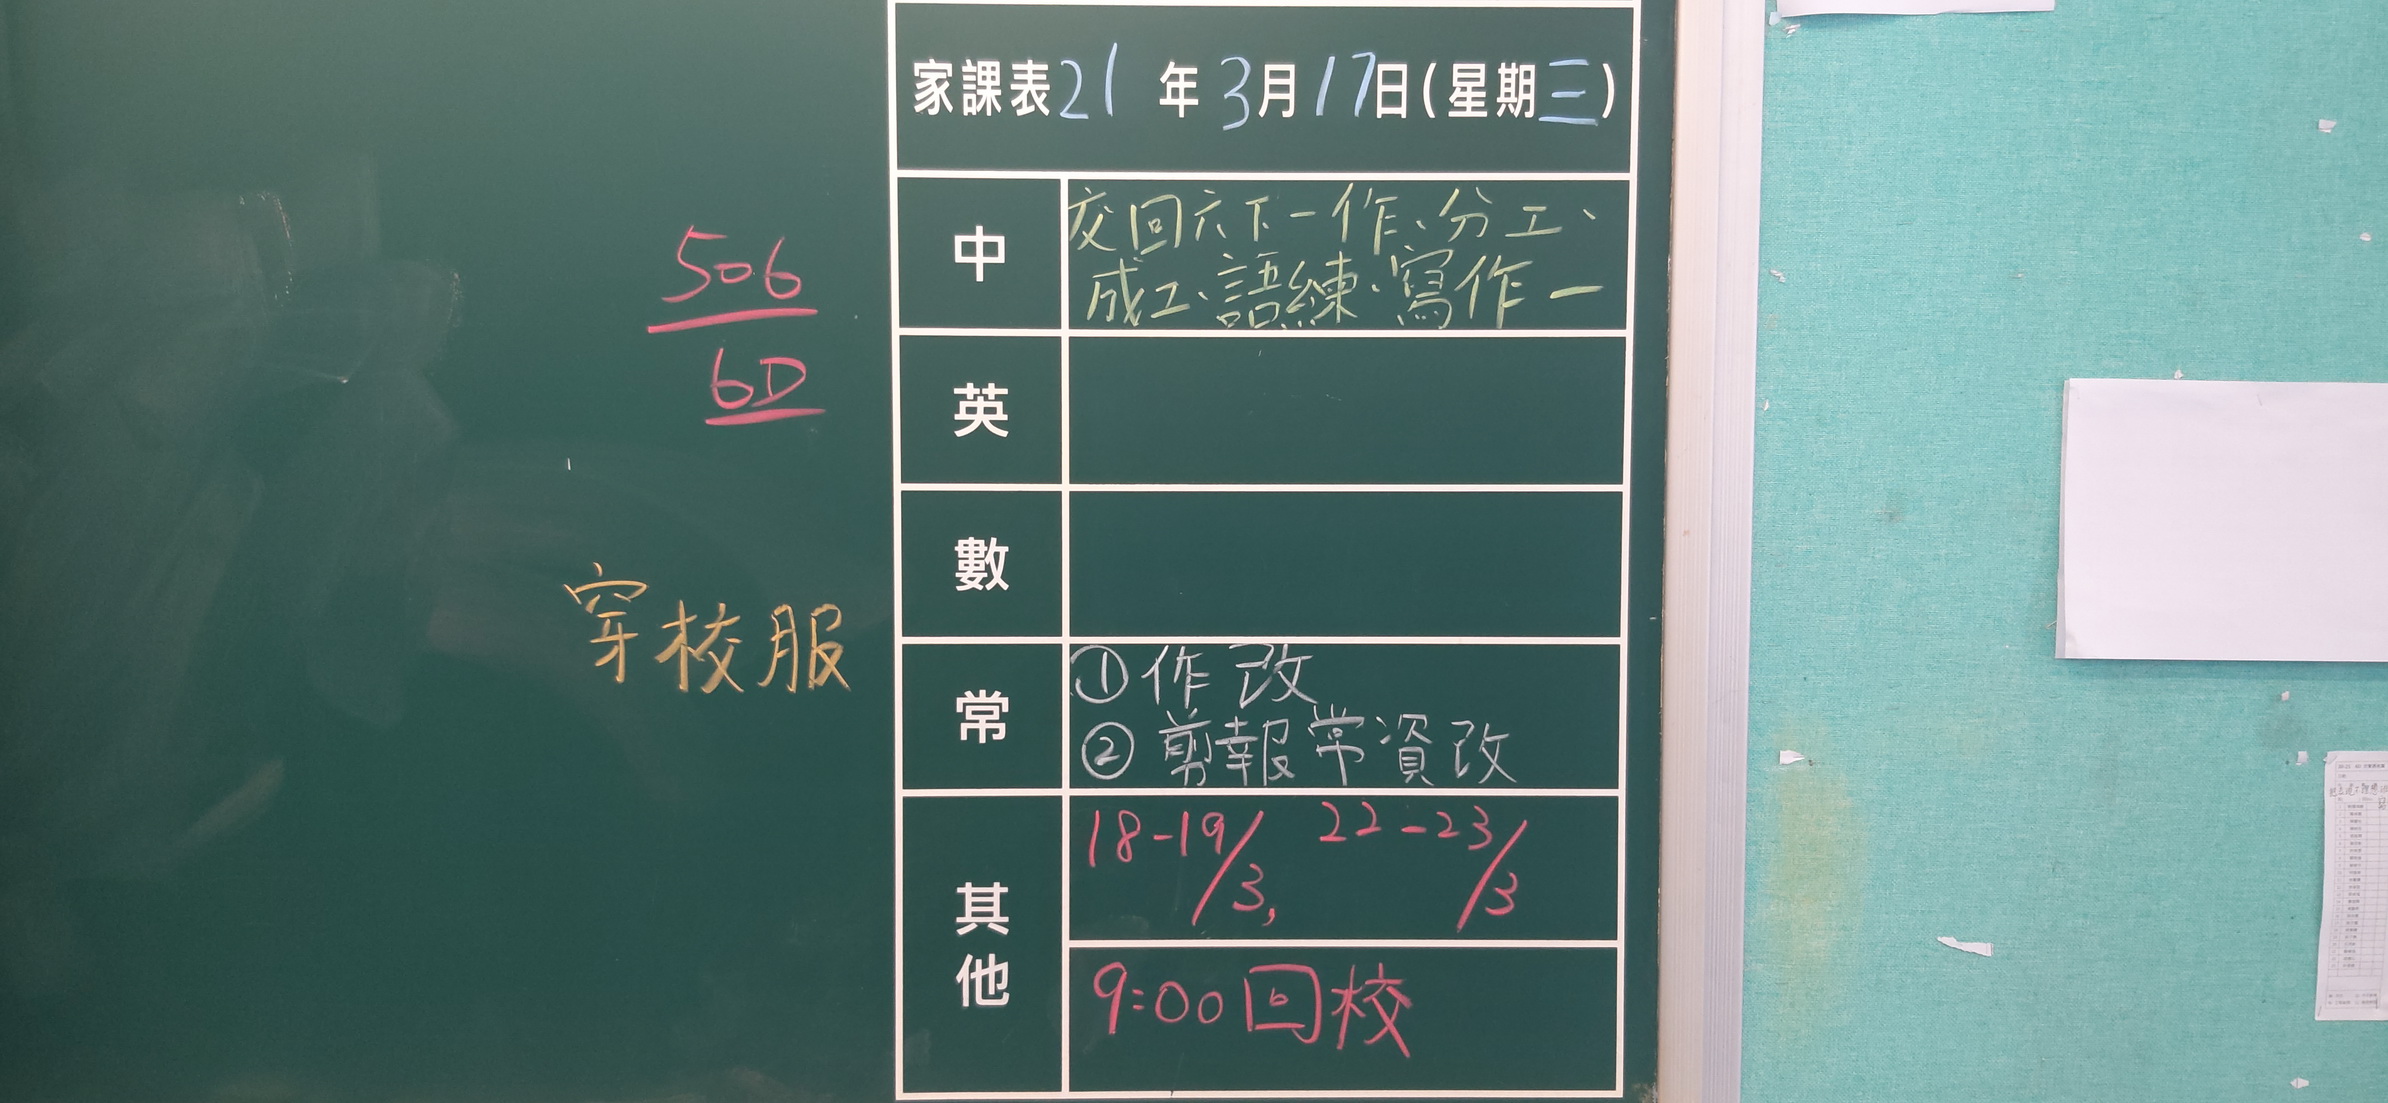 506
6D
穿校服
家課表21年3月17日(星期三)
中
交回六下一作、分工、
成工、語練、寫作一
英
數
常
①作改
②剪報常資改
其他
18-19/3, 22-23/3
9:00回校